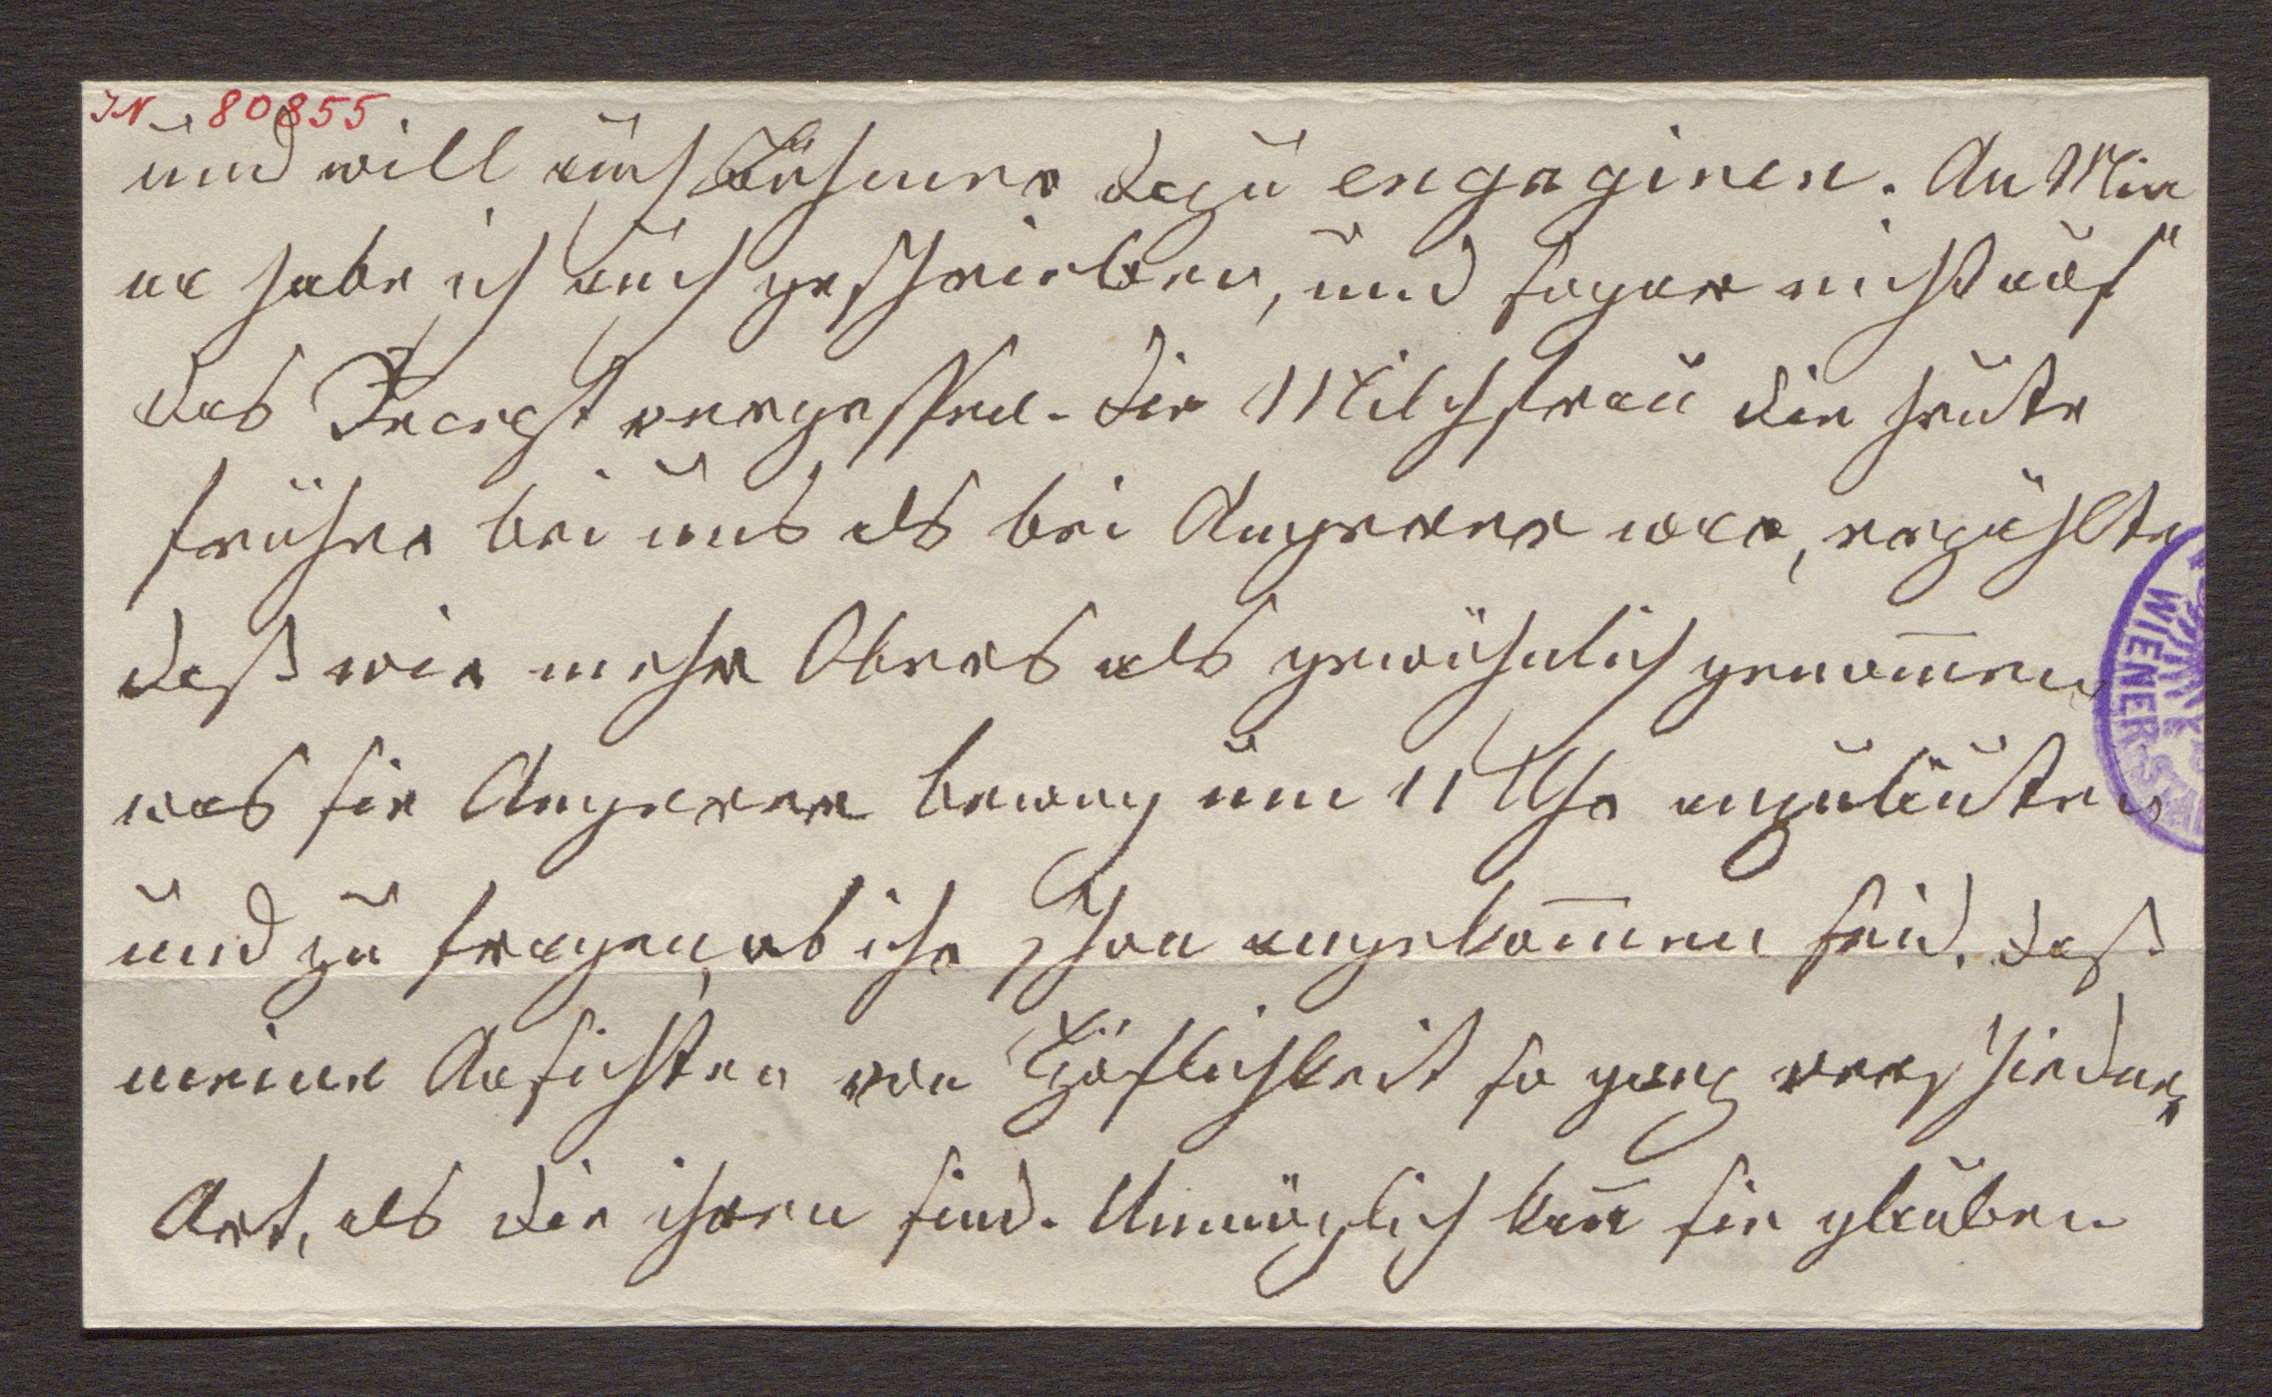 IN 80855
und will auch dazu engagiren. An Min
na habe ich auch geschrieben, und sogar nicht auf
das Recept vergessen. Die Milchfrau die heute
früher bei uns als bei Angerer war, erzählte
daß wir mehr Obers als gewöhnlich genom̅en
was sie Angerer bewog um 11 Uhr anzuläuten
und zu fragen, ob ihr schon angekom̅en seid. Daß
meine Ansichten von Höflichkeit so ganz verschiedner
Art, als die ihren sind. Unmöglich kan̅ sie glauben
WIENER